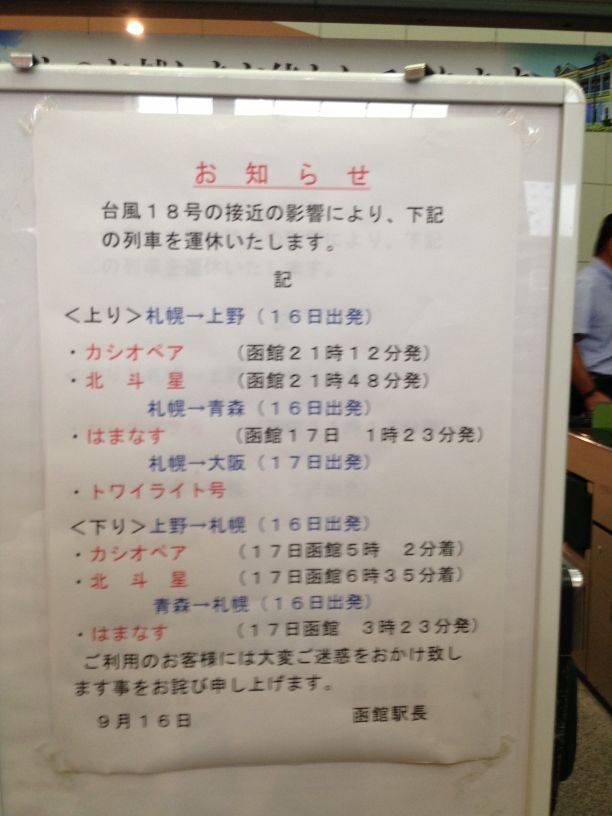 お知らせ
台風１８号の接近の影響により、下記
の列車を運休いたします。
記
＜上り＞札幌→上野（１６日出発）
・カシオペア　（函館２１時１２分発）
・北　斗　星　（函館２１時４８分発）
札幌→青森（１６日出発）
・はまなす　（函館１７日　１時２３分発）
札幌→大阪（１７日出発）
・トワイライト号
＜下り＞上野→札幌（１６日出発）
・カシオペア　（１７日函館５時　２分着）
・北　斗　星　（１７日函館６時３５分着）
青森→札幌（１６日出発）
・はまなす　（１７日函館　３時２３分発）
ご利用のお客様には大変ご迷惑をおかけ致し
ます事をお詫び申し上げます。
９月１６日　函館駅長